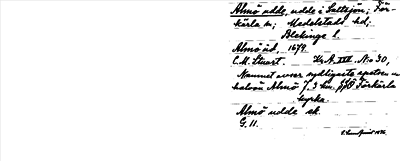 Almö udde, udde i Saltsjön; För-
kärla sn; Medelstads hd;
Blekinge l.
Almö ud, 1679.
C. M. Stuart. Kr. A. XIII. No 30,
Namnet avser sydligaste spetsen av
halvön Almö 7,3 km. SSO Förkärla
kyrka.
Almö udde sk.
G. II.